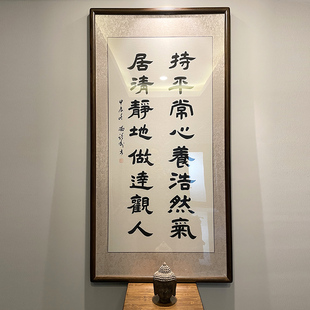 持平常心養浩然氣
居清靜地做達觀人